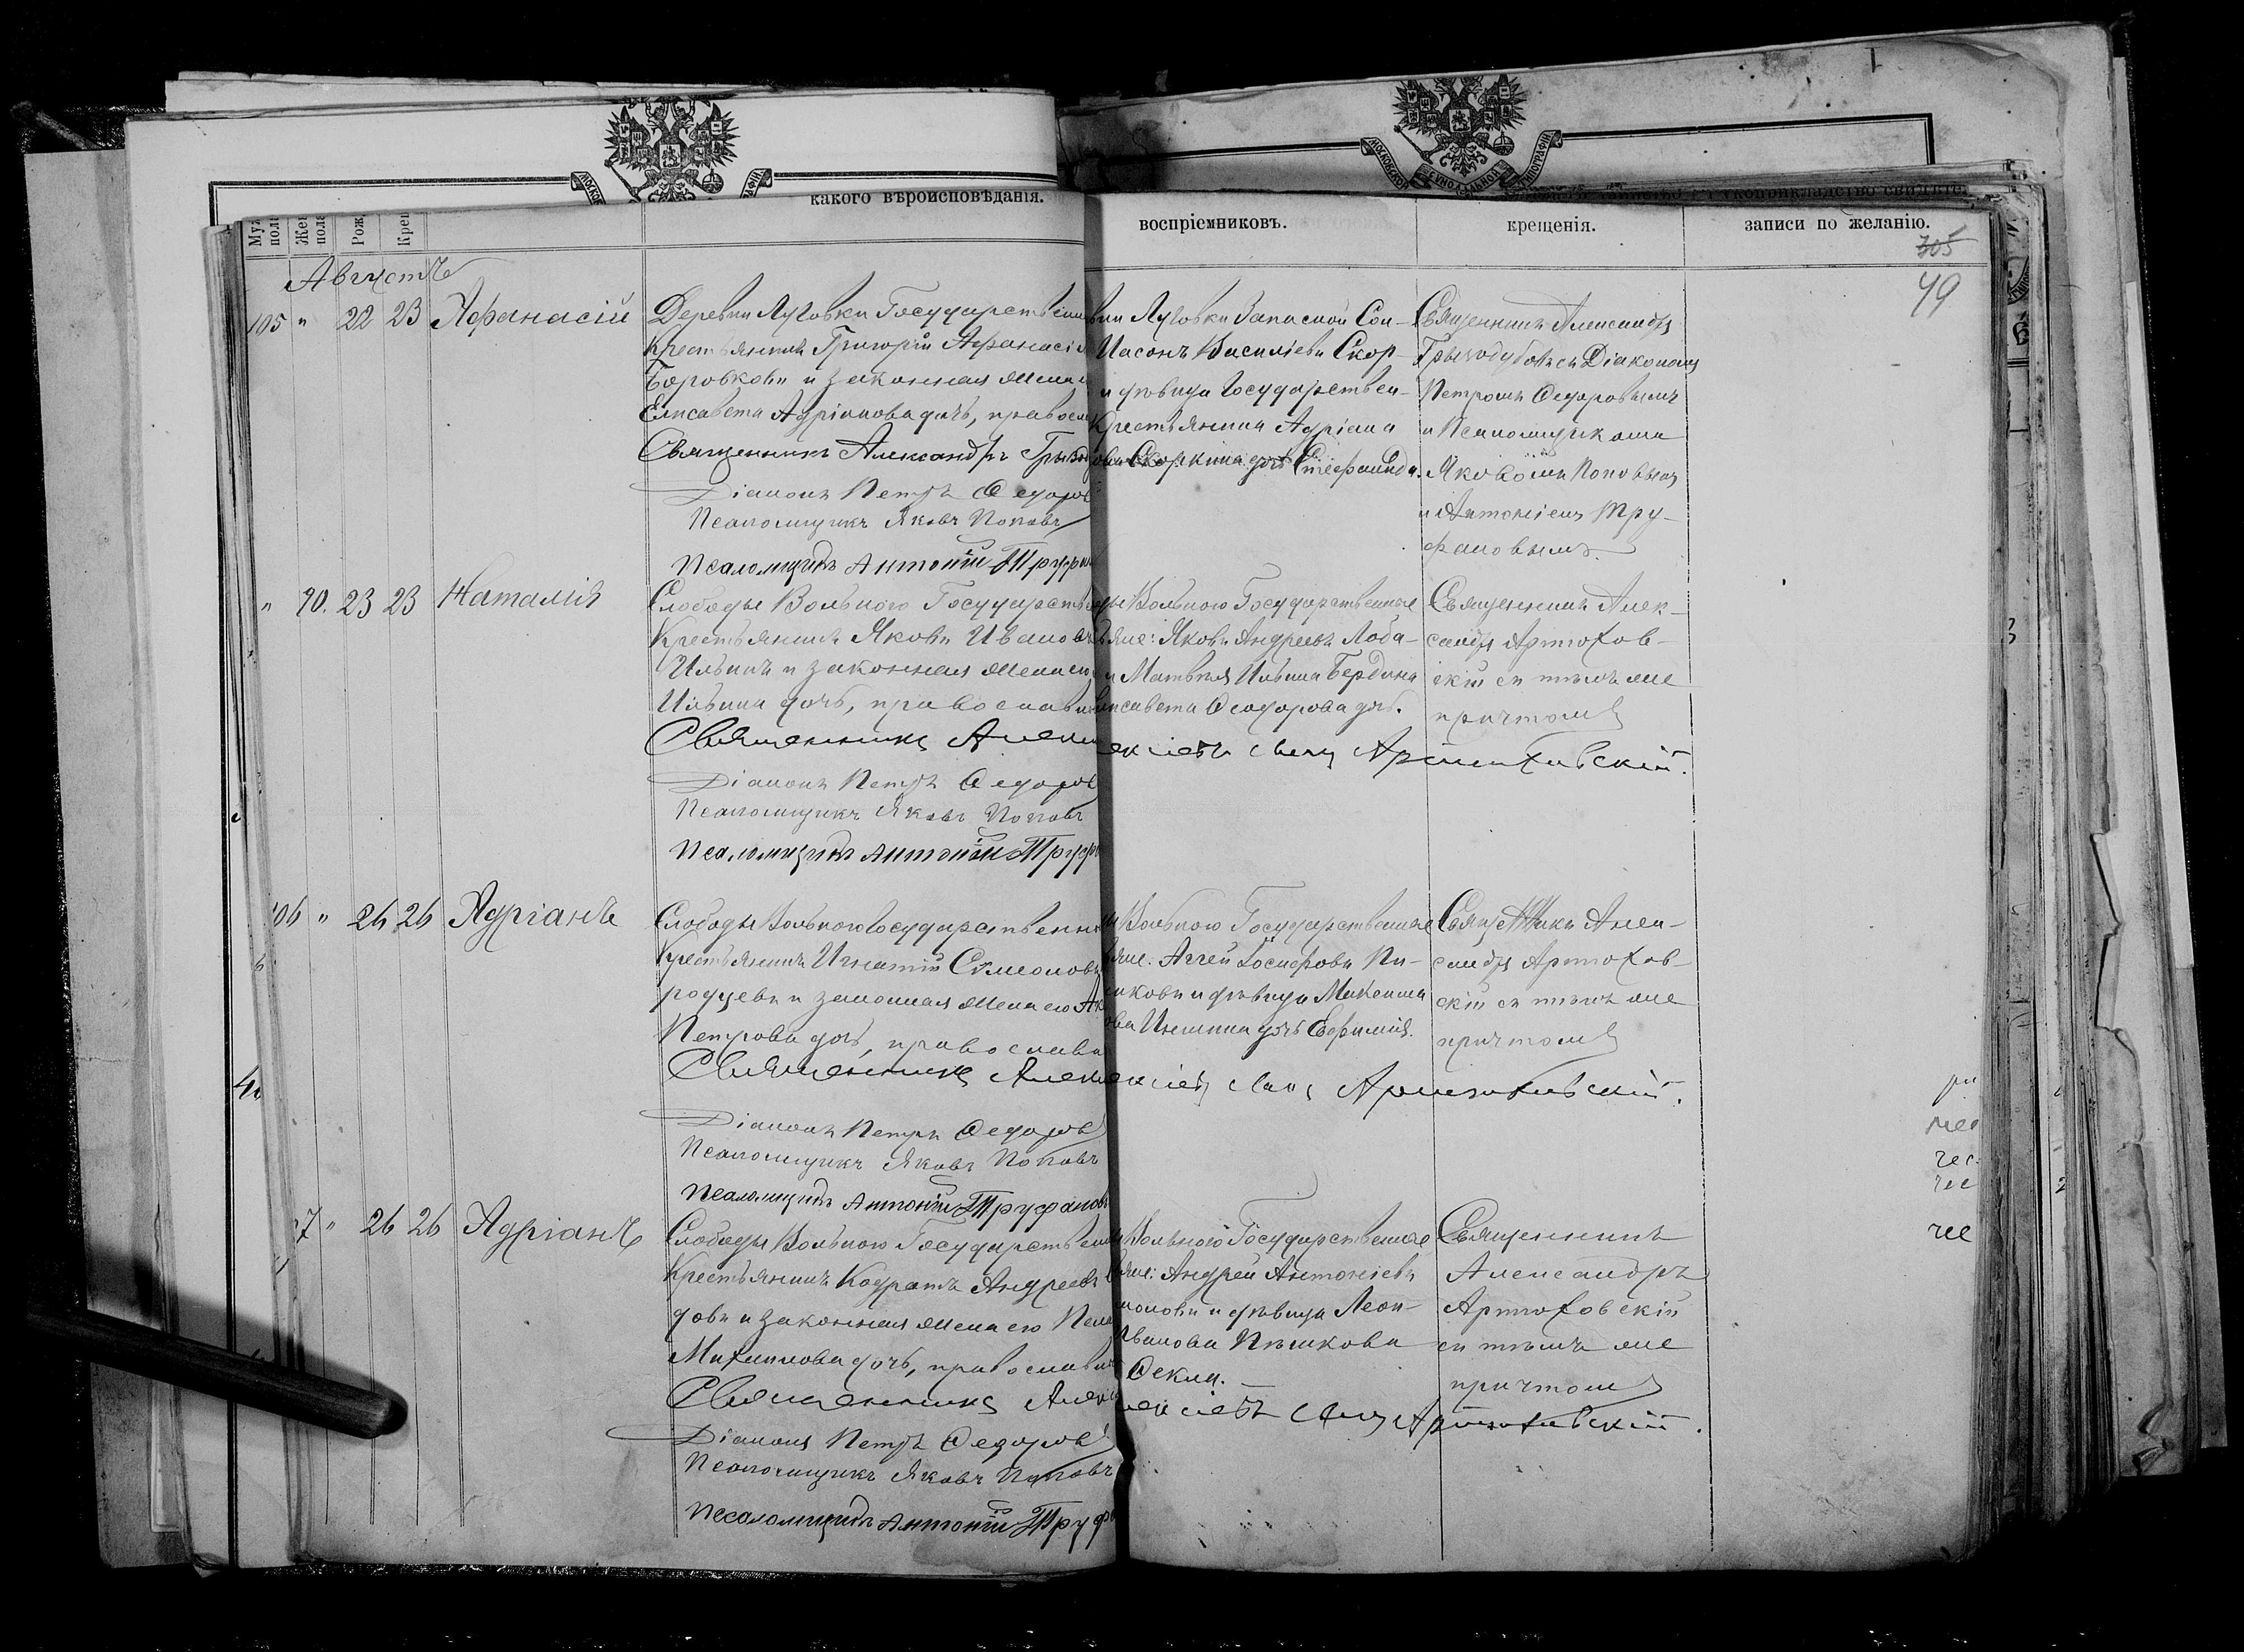 какого вѣроисповѣданія.
воспріемниковъ.
крещенія.
записи по желанію.
305
49
Августъ
105 " 22 23 Афанасій
Деревни Луговки Государствен
Крестьянинъ Григорій Афанасіев
Боровковъ и законная жена
Елисавета Адріанова дочь, правосл
Священникъ Александръ
Діаконъ Петръ Ѳедоров
Псаломщикъ Яковъ Поповъ
Псаломщикъ Антоній Труфа
Луговки Запасной Сол-
Иасонъ Василіевъ Скор-
и дѣвица Государствен-
Крестьянина Адріана
Скоркина дочь Стефанида.
Священникъ Александръ
съ Діакономъ
Петромъ Ѳедоровымъ
и Псаломщиками
Яковомъ Поповымъ
и Антоніемъ Тру-
фановымъ.
" 90. 23 23 Наталія
Слободы Вольного Государств
Крестьянинъ Яковъ Иванов
Ильинъ и законная жена его
Ильина дочь, православн
Священникъ Алек
Діаконъ Петръ Ѳедоров
Псаломщикъ Яковъ Поповъ
Псаломщикъ Антоній Труф
Вольного Государственные
Яковъ Андреевъ Лоба-
и Матвѣя Ильина Бердина
Ѳеодорова дочь.
Священникъ Алек-
сандръ Артюхов-
скій съ тѣмъ же
причтомъ
Артюховскій.
106 " 26 26 Адріанъ
Слободы Вольного Государственн
Крестьянинъ Игнатій Симеоновъ
родцевъ и законная жена его Ак
Петрова дочь, православн
Священникъ Алек
Діаконъ Петръ Ѳедоров
Псаломщикъ Яковъ Поповъ
Псаломщикъ Антоній Труфановъ
Вольного Государственные
Аггей Іосифовъ Пи-
и дѣвица Микеша
дочь Евфимія.
Священникъ Алек-
сандръ Артюхов-
скій съ тѣмъ же
причтомъ
Артюховскій.
7 " 26 26 Адріанъ
Слободы Вольного Государствен
Крестьянинъ Кодратъ Андреевъ
довъ и законная жена его Пела
Михаилова дочь, православн
Священникъ Алек
Діаконъ Петръ Ѳедоров
Псаломщикъ Яковъ Поповъ
Псаломщикъ Антоній Труф
Вольного Государственные
Андрей Антоніевъ
и дѣвица Леон-
Иванова Пѣшкова
Ѳекла.
Священникъ
Александръ
Артюховскій
съ тѣмъ же
причтомъ
Артюховскій.